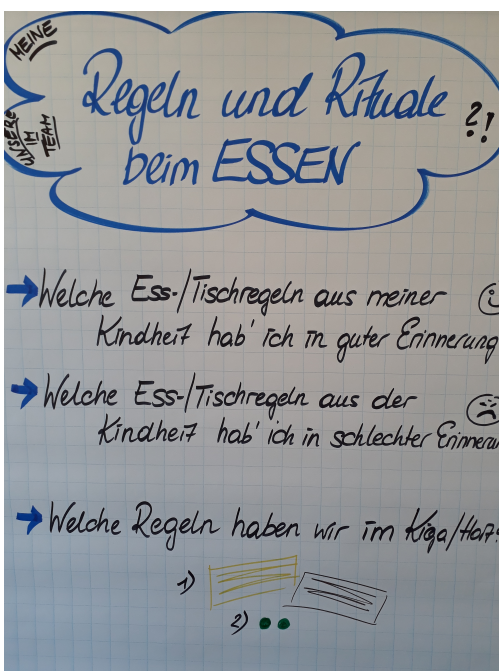 MEINE
UNSERE
IM
TEAM
Regeln und Rituale
beim ESSEN
?!
→ Welche Ess-/Tischregeln aus meiner
Kindheit hab' ich in guter Erinnerung
→ Welche Ess-/Tischregeln aus der
Kindheit hab' ich in schlechter Erinneru
→ Welche Regeln haben wir im Kiga/Hort?
1)
2)